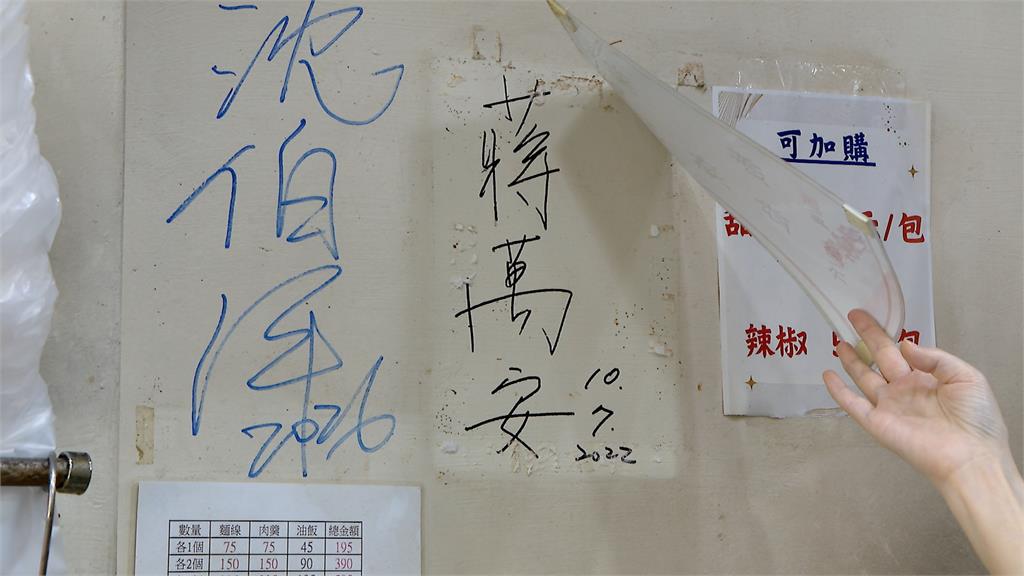 沈
伯
洋
2026
蔣
萬
安
10.
7.
2022
可加購
/包
辣椒
數量 麵線 肉羹 油飯 總金額
各1個 75 75 45 195
各2個 150 150 90 390